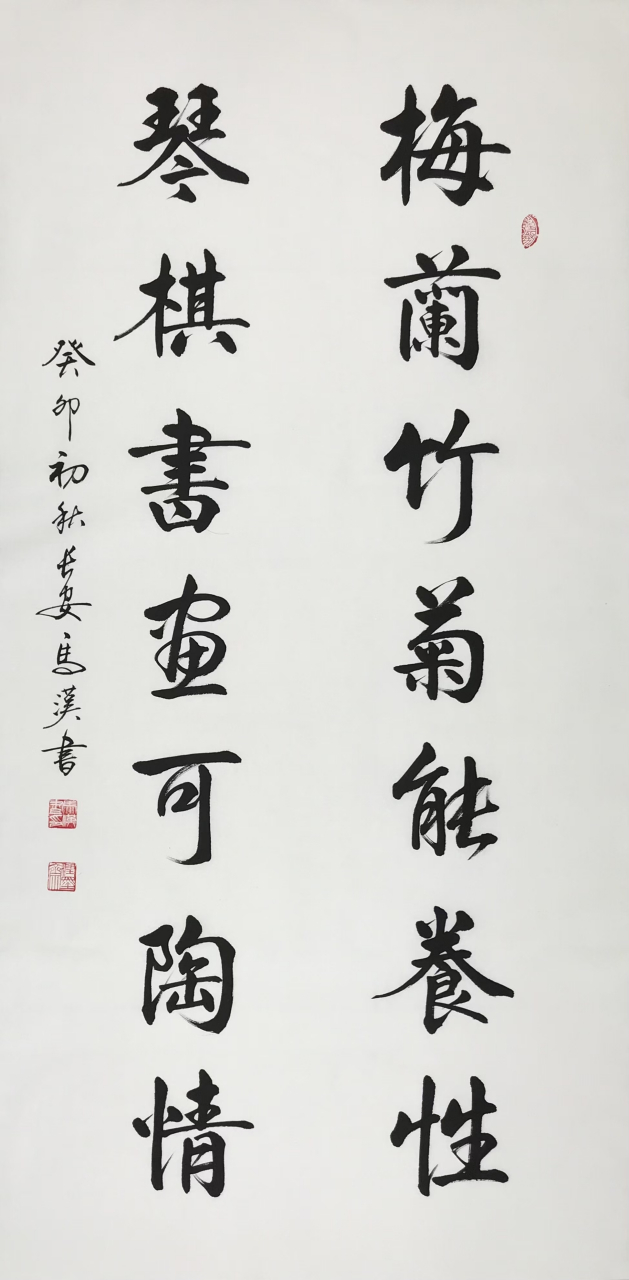 梅蘭竹菊能養性
琴棋書畫可陶情
癸卯初秋長安馬漢書